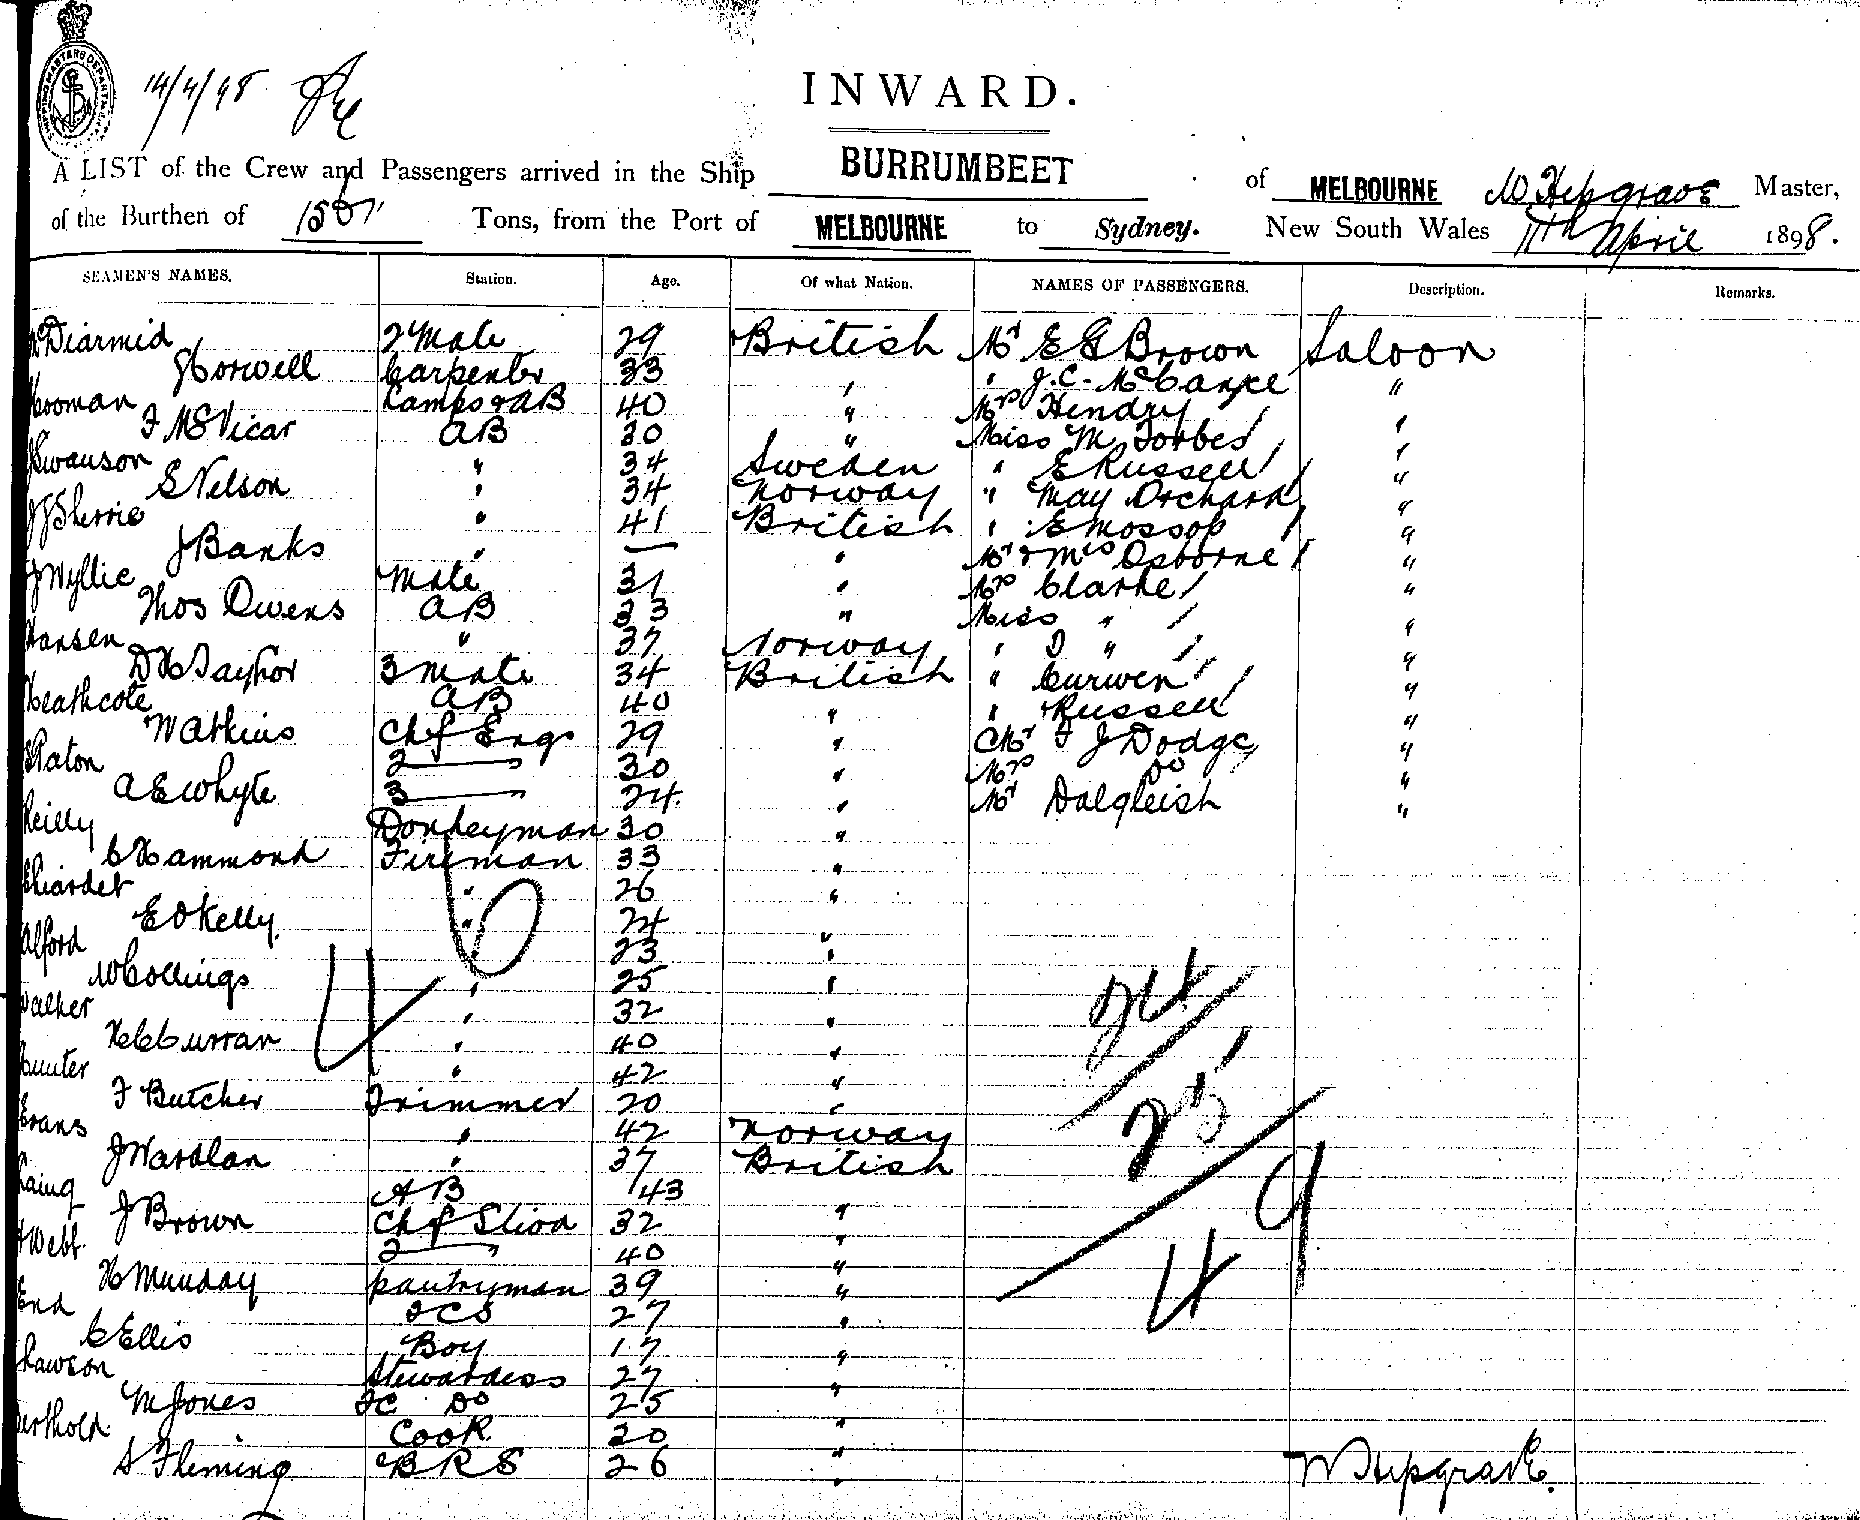 14/4/98
INWARD.
A LIST of the Crew and Passengers arrived in the Ship BURRUMBEET of MELBOURNE W Hepgrave Master,
of the Burthen of Tons, from the Port of MELBOURNE to Sydney. New South Wales 11th April 1898.
SEAMEN'S NAMES. Station. Age. Of what Nation. NAMES OF PASSENGERS. Description. Remarks.
Diarmid 2 Mate 29 British Mr E G Brown Saloon
Horwell Carpenter 33 " " J.C. McCance "
Hooman Lamps & AB 40 " Mrs Hendry "
F McVicar AB 30 " Miss M Forbes "
Swanson " 34 Sweden " E Russell "
E Nelson " 34 Norway " May Orchard "
Sherrie " 41 British " E Mossop "
J Banks " — " Mr & Mrs Osborne "
J Wyllie Mate 31 " Mrs Clarke "
Thos Owens AB 23 " Miss " "
Hansen " 37 Norway " D " "
D H Taylor 3 Mate 34 British " Curwen "
Heathcote AB 40 " " Russell "
W Atkins Chf Engr 29 " Mr F J Dodge "
Paton 2 — 30 " Mrs Do "
A E Whyte 3 — 24 " Mr Dalgleish "
Reilly Donkeyman 30 "
C Hammond Fireman 33 "
Chiardet " 26 "
E O Kelly " 24 "
Alford " 23 "
W Collings " 25 "
Walker " 32 "
H C Curran " 40 "
Hunter " 42 "
F Butcher Trimmer 20 "
Evans " 42 Norway
J Wardlan " 37 British
Laing AB 43 "
J Brown Chf Stwd 32 "
Webb 2 — 40 "
H Munday Pantryman 39 "
End FCS 27 "
C Ellis Boy 17 "
Lawson Stewardess 27 "
M Jones FC Do 25 "
Berthold Cook 20 "
S Fleming BRS 26 "
24
25
49
W Hepgrave.